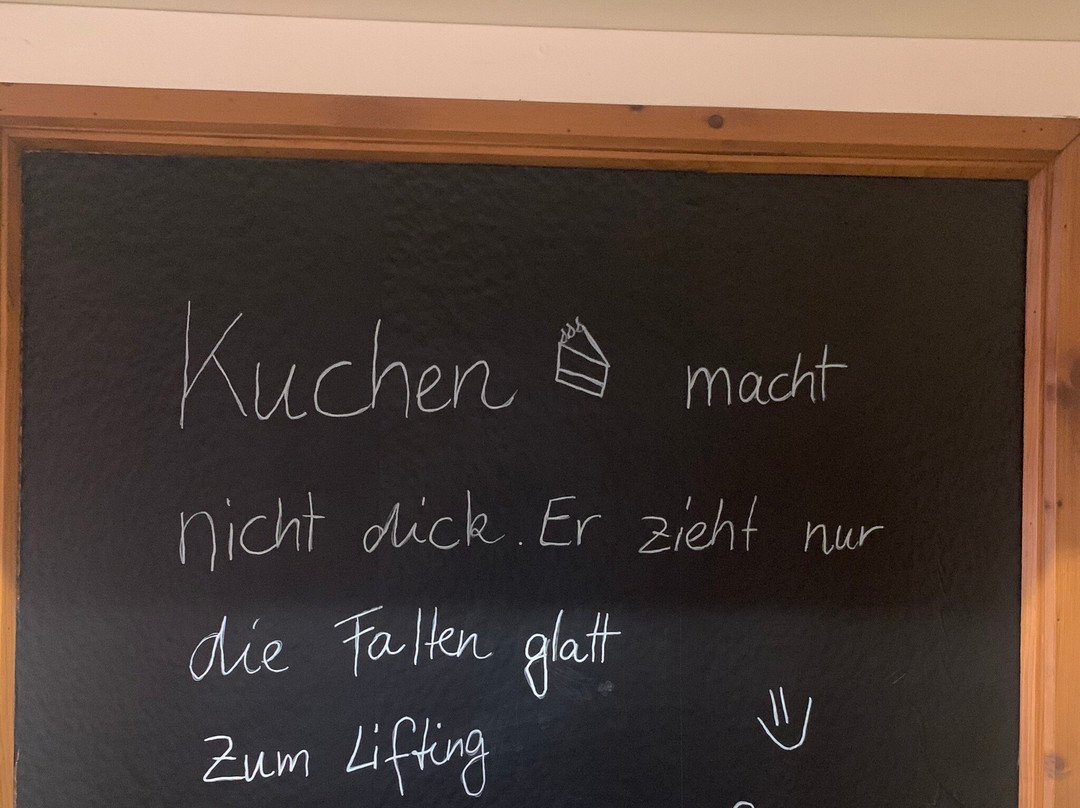 Kuchen macht
nicht dick. Er zieht nur
die Falten glatt
zum Lifting